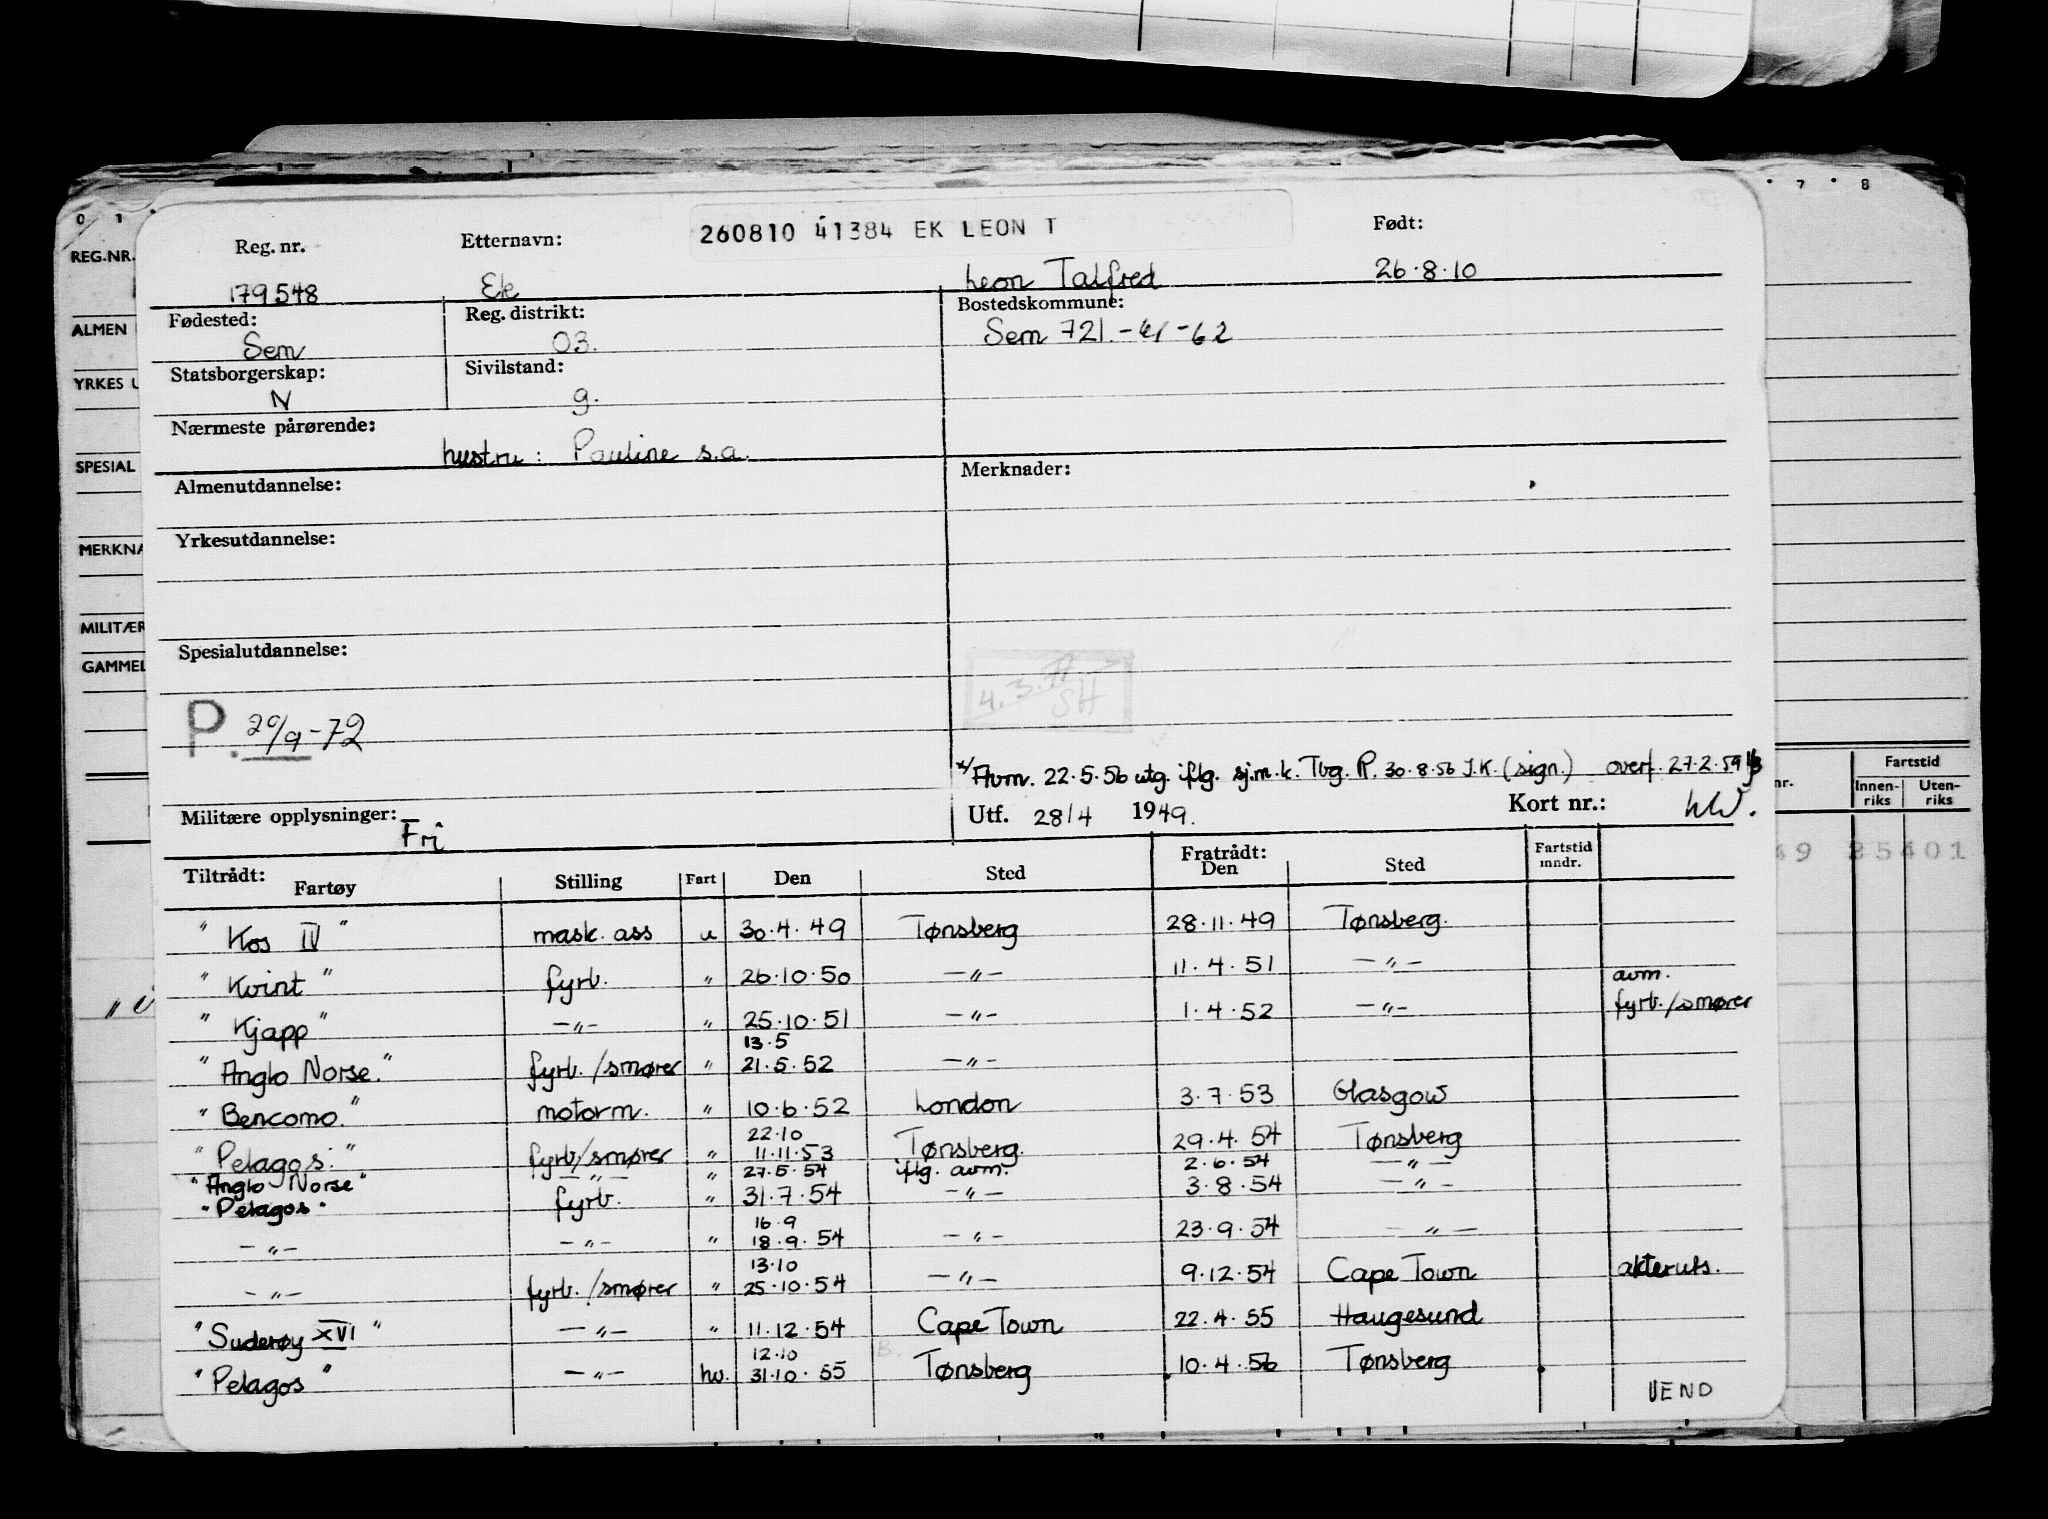 0 1
7 8
REG.NR.
ALMEN
YRKES U
SPESIAL
MERKNA
MILITÆR
GAMMEL
Fartstid
nr.
Innen-riks Uten-riks
49 25401
Reg. nr. Etternavn: 260810 41384 EK LEON T Født:
179548 Ek Leon Talfred 26.8.10
Fødested: Reg. distrikt: Bostedskommune:
Sem 03. Sem 721.-41-62
Statsborgerskap: Sivilstand:
N g.
Nærmeste pårørende:
hustru: Pauline s.a.
Almenutdannelse: Merknader:
Yrkesutdannelse:
Spesialutdannelse:
4.3.77 SH
P. 20/9-72
x/Avm. 22.5.56 utg. iflg. sj.m.k. Tbg. P. 30.8.56 J.K. (sign.) overf. 27.2.59
Militære opplysninger: Fri
Utf. 28/4 1949. Kort nr.: hW.
Tiltrådt: Fratrådt:
Fartøy Stilling Fart Den Sted Den Sted Fartstid mndr.
"Kos IV" mask. ass u 30.4.49 Tønsberg 28.11.49 Tønsberg.
"Kvint" fyrb. " 26.10.50 —"— 11.4.51 —"— avm.
"Kjapp" —"— " 25.10.51 —"— 1.4.52 —"— fyrb./smører
13.5
"Anglo Norse." fyrb./smører " 21.5.52 —"—
"Bencomo." motorm. " 10.6.52 London 3.7.53 Glasgow
22.10
"Pelagos." fyrb/smører " 11.11.53 Tønsberg. 29.4.54 Tønsberg
"Anglo Norse" —"— " 27.5.54 iflg. avm. 2.6.54 —"—
"Pelagos" fyrb. " 31.7.54 —"— 3.8.54 —"—
16.9
—"— —"— " 18.9.54 —"— 23.9.54 —"—
13.10
—"— fyrb./smører " 25.10.54 —"— 9.12.54 Cape Town akteruts.
"Suderøy XVI" —"— " 11.12.54 Cape Town 22.4.55 Haugesund
12.10
"Pelagos" —"— hv. 31.10.55 Tønsberg 10.4.56 Tønsberg
VEND